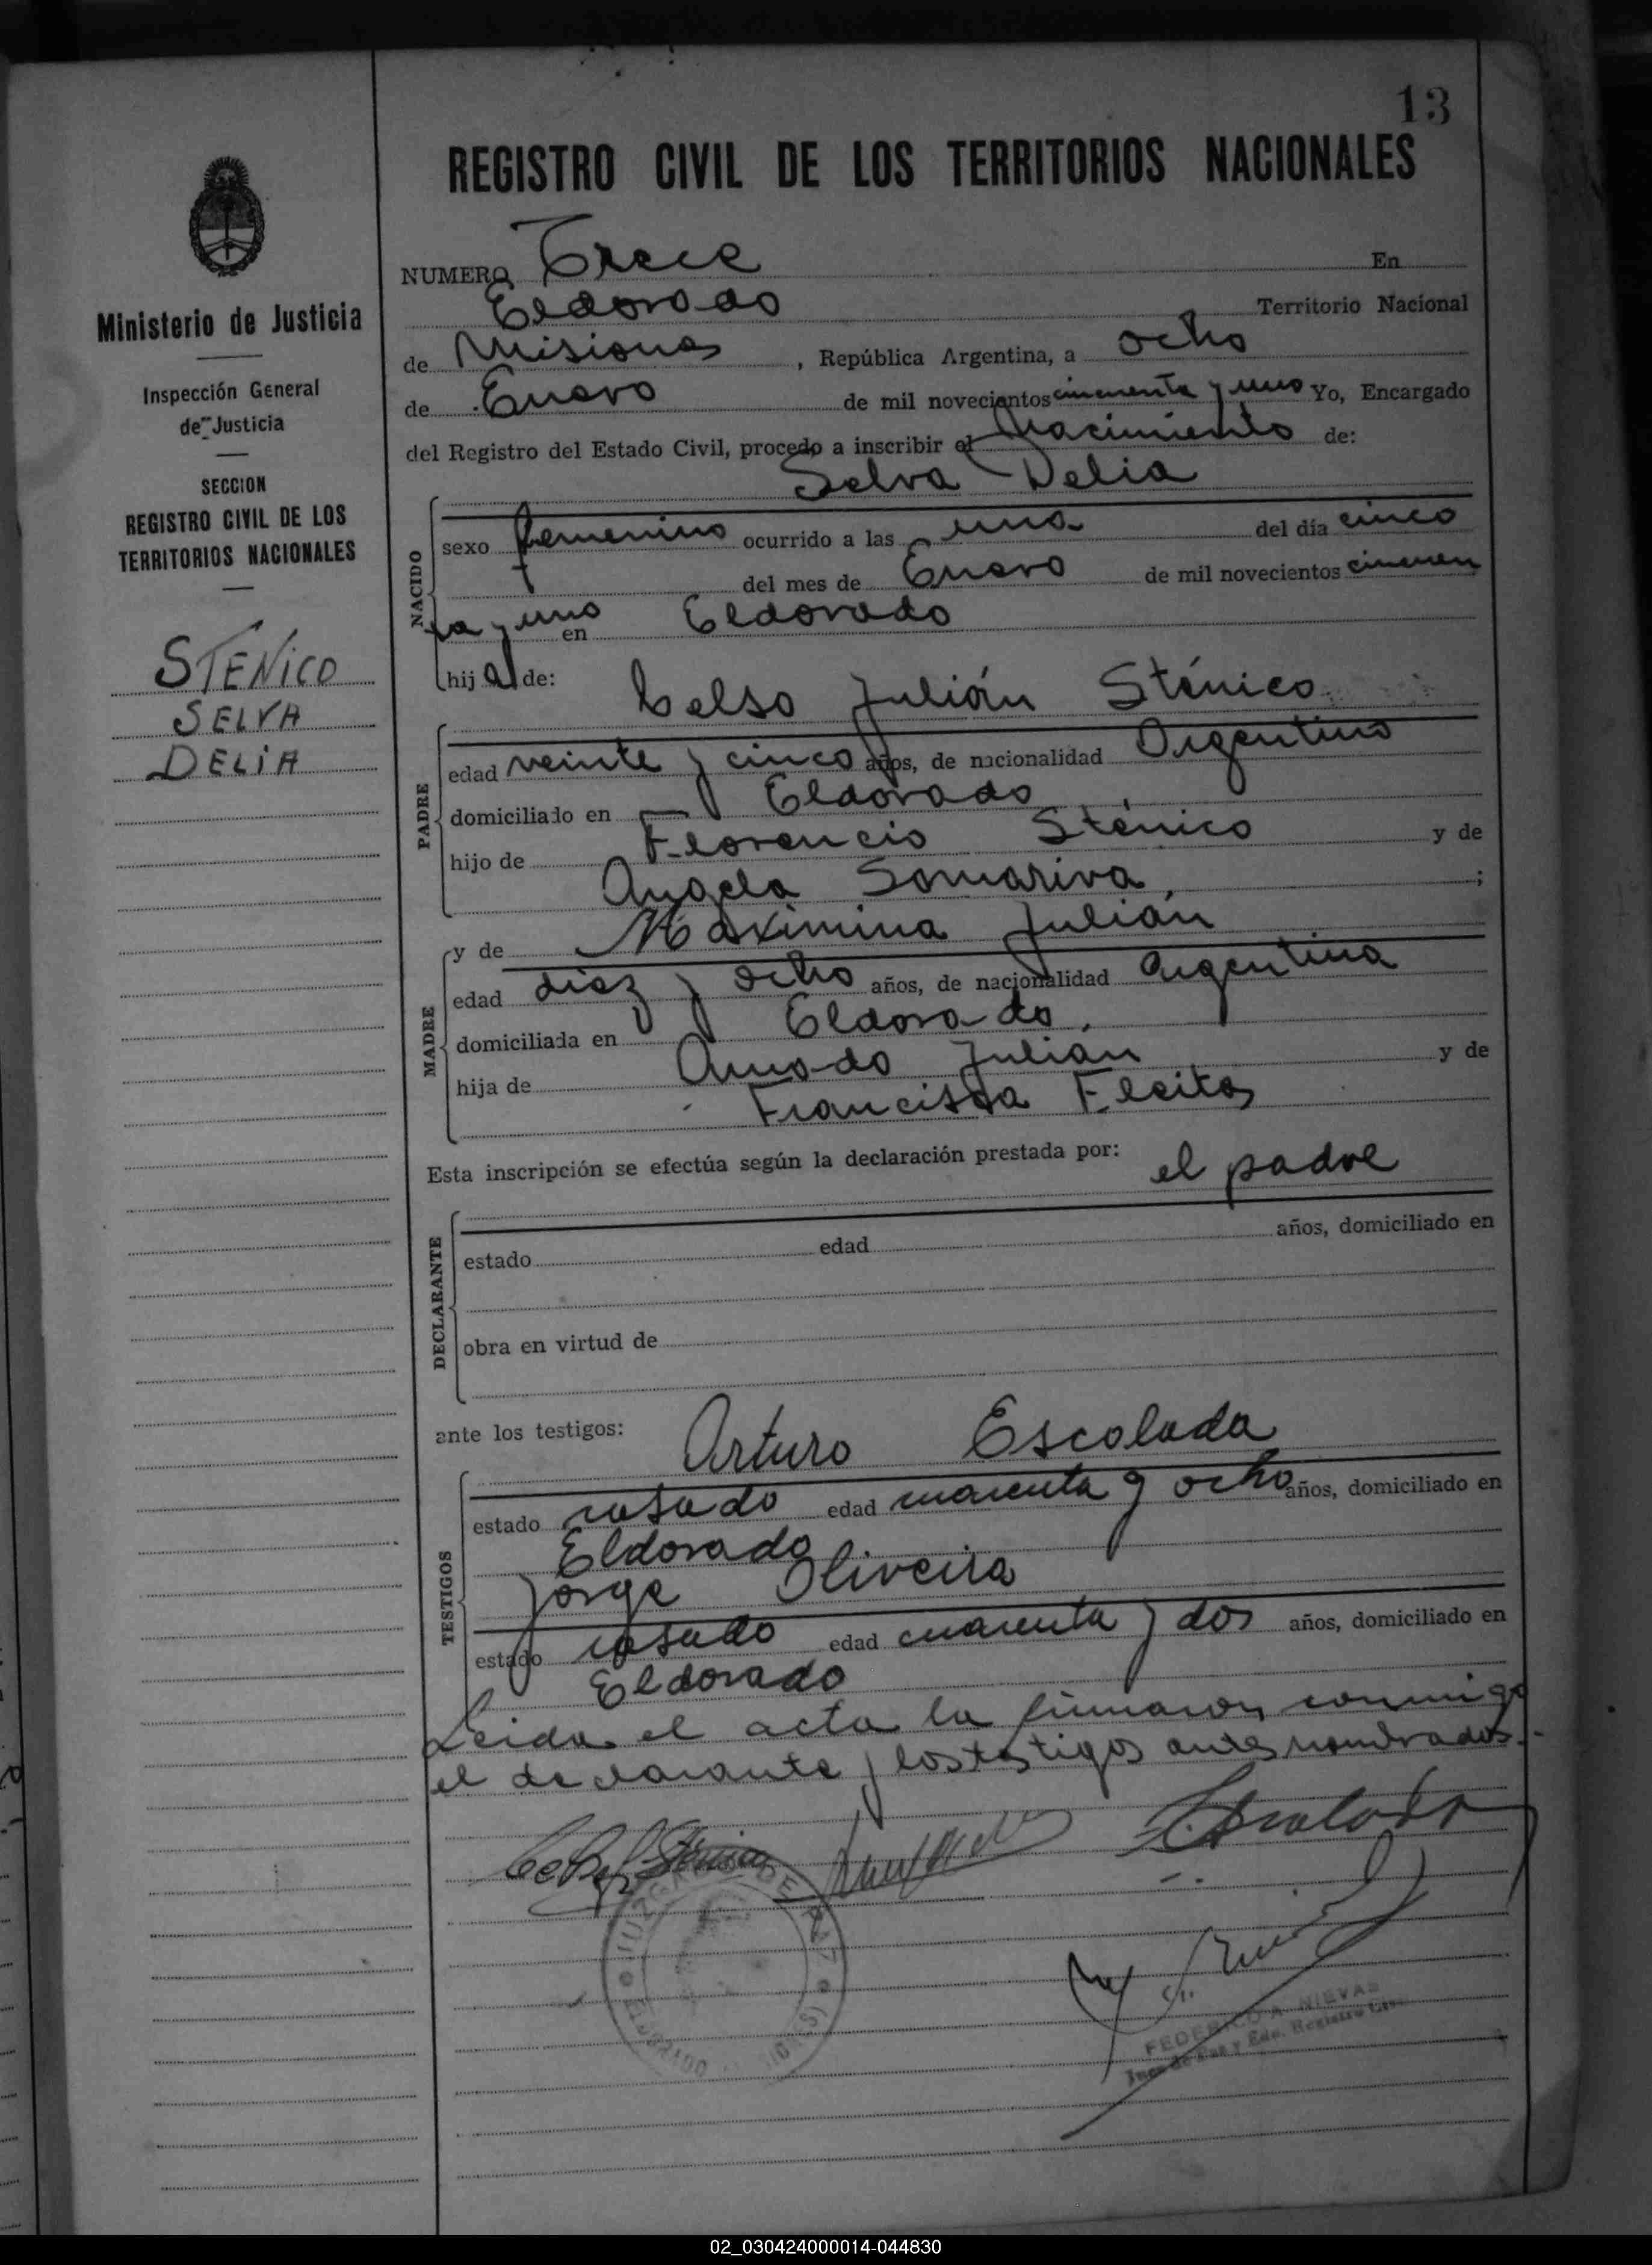 13
REGISTRO CIVIL DE LOS TERRITORIOS NACIONALES
Ministerio de Justicia
Inspección General
de Justicia
SECCION
REGISTRO CIVIL DE LOS
TERRITORIOS NACIONALES
STENICO
SELVA
DELIA
NUMERO Trece En
Eldorado Territorio Nacional
de Misiones, República Argentina, a ocho
de Enero de mil novecientos cincuenta y uno Yo, Encargado
del Registro del Estado Civil, procedo a inscribir el Nacimiento de:
Selva Delia
NACIDO
sexo femenino ocurrido a las una del día cinco
del mes de Enero de mil novecientos cincuen
ta y uno en Eldorado
hija de: Celso Julián Sténico
PADRE
edad veinte y cinco años, de nacionalidad Argentino
domiciliado en Eldorado
hijo de Florencio Sténico y de
Angela Somariva, ;
y de Maximina Julián
MADRE
edad diez y ocho años, de nacionalidad Argentina
domiciliada en Eldorado,
hija de Amado Julian y de
Francisca Fleitas
Esta inscripción se efectúa según la declaración prestada por: el padre
DECLARANTE
estado edad años, domiciliado en
obra en virtud de
ante los testigos: Arturo Escalada
TESTIGOS
estado casado edad cuarenta y ocho años, domiciliado en
Eldorado
Jorge Oliveira
estado casado edad cuarenta y dos años, domiciliado en
Eldorado
Leida el acta la firmaron conmigo
el declarante y los testigos antes nombrados.-
JUZGADO DE PAZ
ELDORADO (MISIONES)
FEDERICO A. NIEVAS
Juez de Paz y Enc. Registro Civil
02_030424000014-044830